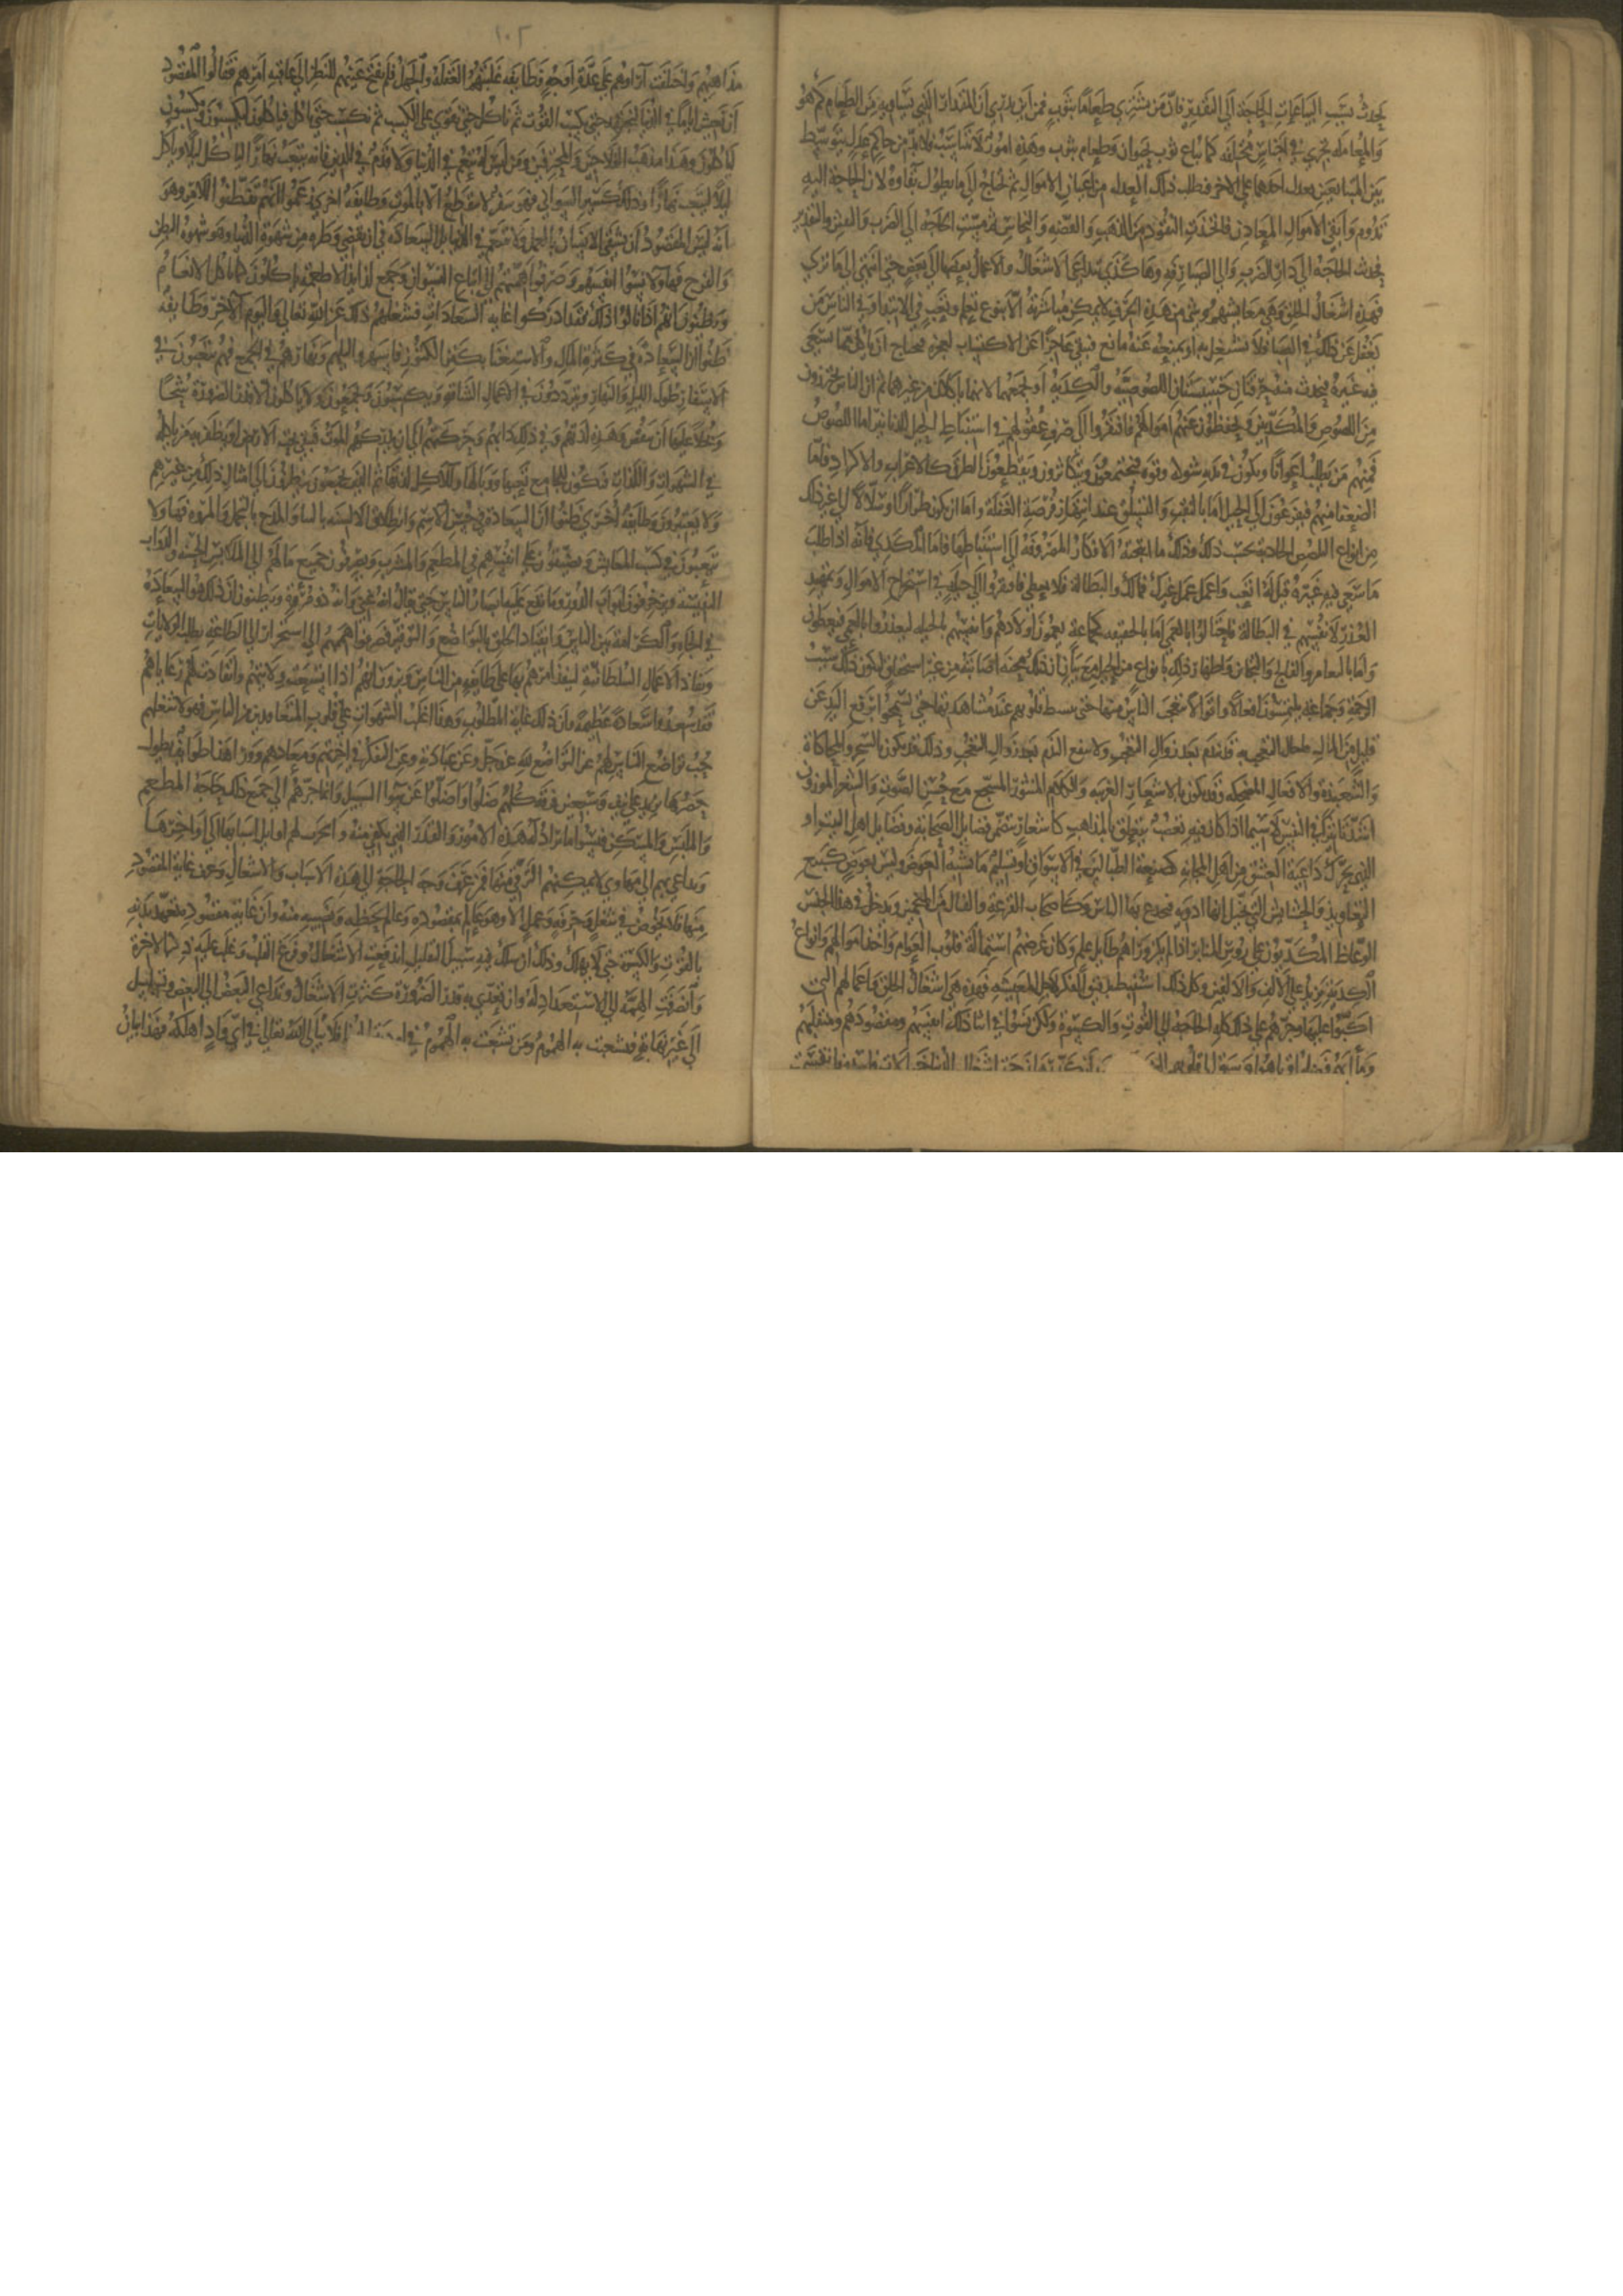 يحدث بسبب البياعات الحاجة الى التقدير فان من يشتري طعاما بثوب فمن اين يدري ان المقدار الذي يساويه من الطعام كم هو
والمعاملة تجري في اجناس مختلفة كما يباع ثوب بحيوان وطعام بثوب وهذه امور لا تتناسب فلا بد من حاكم عدل يتوسط
بين المتبايعين يعدل احدهما على الاخر فطلب ذلك العدل من اعيان الاموال ثم يحتاج الى ما يطول بقاوه لان الحاجة اليه
تدوم وابقى الاموال المعادن فاتخذت النقود من الذهب والفضة والنحاس ثم مست الحاجة الى الضرب والنقش والتقدير
يحدث الحاجة الى دار الضرب والى الصيارفة وهكذى تتداعى الاشغال والاعمال بعضها الى بعض حتى انتهى الى ما تري
فهذه اشغال الخلق وهي معايشهم وشي من هذه الحرف لا يمكن مباشرته الا بنوع تعلم وتعب في الابتدا وفي الناس من
يغفل عن ذلك في الصبا فلا يشتغل به او يمنعه عنه مانع فيبقى عاجزا عن الاكتساب لعجزه فيحتاج ان ياكل مما يسعى
فيه غيره فيحدث منه حرفتان خسيستان اللصوصية والكدية اذ يجمعهما انهما ياكلان من غيرهما ثم ان الناس يحترزون
من اللصوص والمكدين ويحفظون عنهم اموالهم فافتقروا الى صرف عقولهم في استنباط الحيل والتدابير اما اللصوص
فمنهم من يطلب اعوانا ويكون في يديه شوكة وقوة فيجتمعون ويتكاثرون ويقطعون الطرق كالاعراب والاكراد فاما
الضعفا منهم فيفزعون الى الحيل اما بالنقب والتسلق عند انتهاز فرصة الغفلة واما ان يكون طرارا او سلالا الى غير ذلك
من انواع التلصص الحادثة بحسب ذلك وذلك ما انتجته الافكار المصروفة الى استنباطها فاما المكدي فانه اذا طلب
ما سعى فيه غيره قيل له اتعب واعمل عمل غيرك فمالك والبطالة فلا يعطى فافتقروا الى حيلة في استخراج الاموال وتمهيد
العذر لانفسهم في البطالة فاحتالوا بالتعامى اما بالحقيقة كجماعة يعمون اولادهم وانفسهم بالحيلة ليعذروا بالعمى فيعطون
واما بالتعامى والتفالج والتجانن واظهار ذلك بانواع من الحيل مع بيان ان ذلك محنة اصابته من غير استحقاق ليكون ذلك سبب
الرحمة وجماعة يلتمسون افعالا واقوالا يتعجب الناس منها حتى تنبسط قلوبهم عند مشاهدتها حتى يسخوا برفع اليد عن
قليل من المال في حال التعجب ثم قد يندم بعد زوال التعجب ولا ينفع الندم بعد زوال التعجب وذلك قد يكون بالتمسخر والمحاكاة
والشعبذة والافعال المضحكة وقد يكون بالاشعار الغريبة والكلام المنثور المسجع مع حسن الصوت والشعر الموزون
اشد تاثيرا في النفس لا سيما اذا كان فيه تعصب يتعلق بالمذاهب كاشعار تتضمن فضايل الصحابة وفضايل اهل البيت او
الذي يحرك داعية العشق من اهل المجانة كصنعة الطبالين في الاسواق او تسليم ما يشبه العوض وليس بعوض كبيع
التعاويذ والحشايش التي يخيل انها ادوية فيخدع بها الناس وكاصحاب القرعة والفال من المنجمين ويدخل في هذا الجنس
الوعاظ المكدون على روس المنابر اذا لم يكن وراهم طايل علم وكان غرضهم استمالة قلوب العوام واخذ اموالهم وانواع
الكدية تزيد على الالف والالفين وكل ذلك استنبط بدقيق الفكر لاجل المعيشة فهذه هي اشغال الخلق واعمالهم التي
اكبوا عليها وجرهم على ذلك كله الحاجة الى القوت والكسوة ولكن نسوا في اثنا ذلك انفسهم ومقصودهم ومنقلبهم
مذاهبهم واختلفت آراوهم على عدة اوجه فطايفة غلبهم الغفلة والجهل فلم تنفتح عينهم للنظر الى عاقبة امرهم فقالوا المقصود
ان نعيش اياما في الدنيا فنجتهد حتى نكسب القوت ثم ناكل حتى نقوى على الكسب ثم نكسب حتى ناكل فياكلون ليكسبوا ويكسبون
لياكلون وهذا مذهب الفلاحين والمحترفين ومن ليس له تنعم في الدنيا ولا قدم في الدين فانه يتعب نهارا لياكل ليلا وياكل
ليلا ليتعب نهارا وذلك كسير السواني فهو سفر لا ينقطع الا بالموت وطايفة اخرى زعموا انهم تفطنوا لامر وهو
انه ليس المقصود ان يشقى الانسان بالعمل ولا يتنعم في الدنيا بل السعادة في ان يقضي وطره من شهوة الدنيا وهو شهوة البطن
والفرج فهاولا نسوا انفسهم وصرفوا همتهم الى اتباع النسوان وجمع لذايذ الاطعمة ياكلون كما تاكل الانعام
ويظنون انهم اذا نالوا ذلك فقد ادركوا غاية السعادات فشغلهم ذلك عن الله تعالى واليوم الآخر وطايفة
ظنوا ان السعادة في كثرة المال والاستغنا بكنز الكنوز فاسهروا ليلهم ونهارهم في الجمع فهم يتعبون في
الاسفار طول الليل والنهار ويترددون في الاعمال الشاقة ويكسبون ويجمعون ولا ياكلون الا قدر الضرورة شحا
وبخلا عليها ان تنقص وهذه لذتهم وفي ذلك دابهم وحركتهم الى ان يدركهم الموت فيبقى تحت الارض او يظفر به من ياكله
في الشهوات واللذات فيكون للجامع تعبها ووبالها وللآكل لذتها ثم الذين يجمعون ينظرون الى امثال ذلك من غيرهم
ولا يعتبرون وطايفة اخرى ظنوا ان السعادة في حسن الاسم وانطلاق الالسنة بالثنا والمدح بالتجمل والمروة فهاولا
يتعبون في كسب المعايش ويضيقون على انفسهم في المطعم والمشرب ويصرفون جميع مالهم الى الملابس الحسنة والدواب
النفيسة ويزخرفون ابواب الدور وما يقع عليه ابصار الناس حتى يقال انه غني وانه ذو ثروة ويظنون ان ذلك هو السعادة
في الجاه والكرامة بين الناس وانقياد الخلق بالتواضع والتوقير فصرفوا همهم الى استجرار الناس الى الطاعة بطلب الولايات
وتقلد الاعمال السلطانية لينفذ امرهم بها على طايفة من الناس ويرون انهم اذا اتسعت ولايتهم وانقادت لهم رعاياهم
فقد سعدوا سعادة عظيمة وان ذلك غاية المطلوب وهذا اغلب الشهوات على قلوب المتغافلين من الناس فهاولا شغلهم
حب تواضع الناس لهم عن التواضع لله عز وجل وعن عبادته وعن التفكر في اخرتهم ومعادهم وورا هذا طوايف يطول
حصرها تزيد على نيف وسبعين فرقة كلهم ضلوا واضلوا عن سوا السبيل وانما جرهم الى جميع ذلك حاجة المطعم
والملبس والمسكن فنسوا ما تراد له هذه الامور والقدر الذي يكفي منه وانجرت لهم اوايل اسبابها الى اواخرها
وتداعى بهم الى مهاوي لا يمكنهم الترقي منها فمن عرف وجه الحاجة الى هذه الاسباب والاشغال وعرف غاية المقصود
منها فلا يخوض في شغل وحرفة وعمل الا وهو عالم بمقصوده وعالم بحظه ونصيبه منه وان غاية مقصوده تعهد بدنه
بالقوت والكسوة حتى لا يهلك وذلك ان سلك فيه سبيل التقليل اندفعت الاشغال وفرغ القلب وغلب عليه ذكر الاخرة
وانصرفت الهمة الى الاستعداد له وان تعدى به قدر الضرورة كثرت الاشغال وتداعى البعض الى البعض وتسلسل
الى غير نهاية فتشعبت به الهموم ومن تشعبت به الهموم في فلا يبالي الله تعالى في اي واد اهلكه فهذا شان